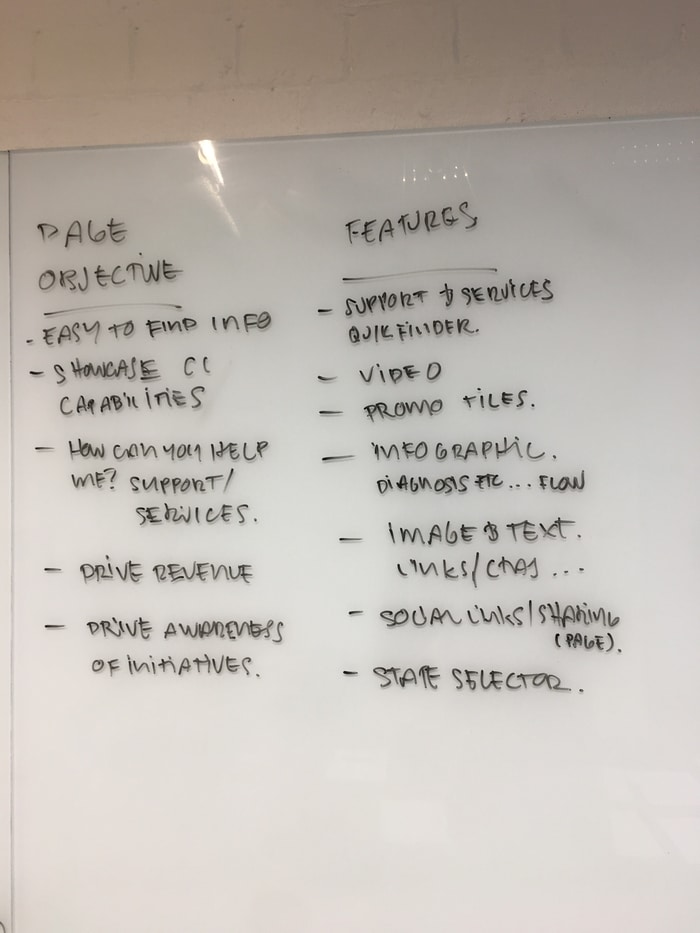 PAGE
OBJECTIVE
- EASY TO FIND INFO
- SHOWCASE CC
CAPABILITIES
- HOW CAN YOU HELP
ME? SUPPORT/
SERVICES.
- DRIVE REVENUE
- DRIVE AWARENESS
OF INITIATIVES.
FEATURES
- SUPPORT & SERVICES
QUIKFINDER.
- VIDEO
- PROMO TILES.
- INFOGRAPHIC.
DIAGNOSIS ETC... FLOW
- IMAGE & TEXT.
LINKS/CTAS ...
- SOCIAL LINKS/SHARING
(PAGE).
- STATE SELECTOR.